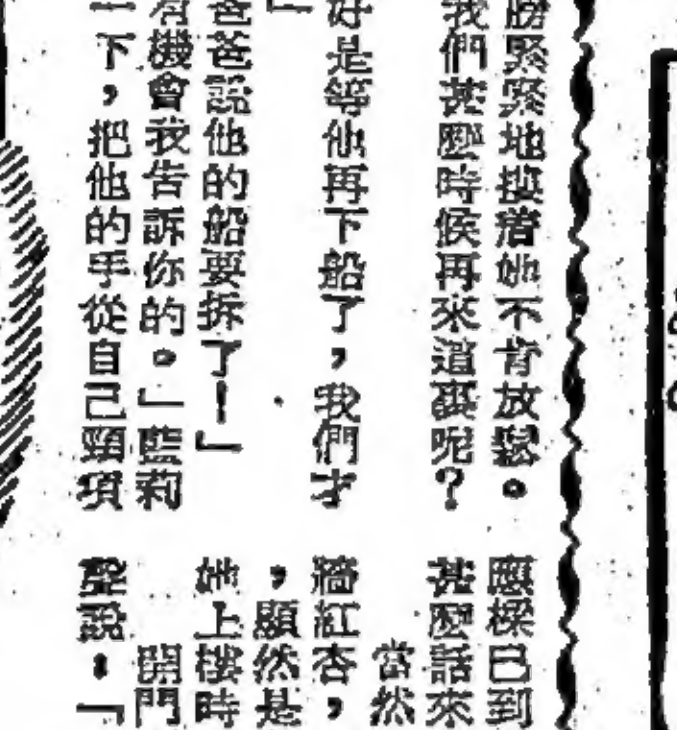 膀緊緊地摟着她不肯放鬆。
我們甚麼時候再來這裏呢?
好是等他再下船了,我們才
」
爸爸說他的船要拆了!」
有機會我告訴你的。」藍莉
一下,把他的手從自己頸項
應樑已到
甚麼話來
當然
牆紅杏,
,顯然是
她上樓時
開門
聲說:「